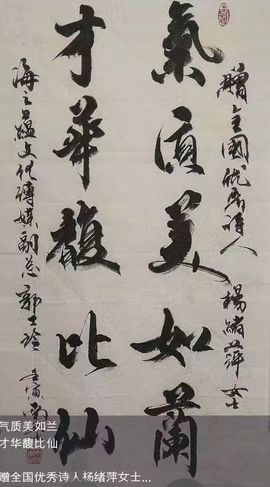 贈全國優秀詩人 楊緒萍女士
氣质美如蘭
才華馥比仙
海之蕴文化傳媒副总
气质美如兰
才华馥比仙
赠全国优秀诗人杨绪萍女士...